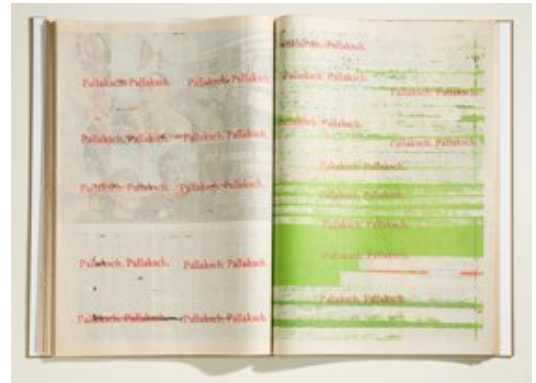 Pallaksch. Pallaksch. Pallaksch. Pallaksch.
Pallaksch. Pallaksch. Pallaksch. Pallaksch.
Pallaksch. Pallaksch. Pallaksch. Pallaksch.
Pallaksch. Pallaksch. Pallaksch. Pallaksch.
Pallaksch. Pallaksch. Pallaksch. Pallaksch.
Pallaksch. Pallaksch.
Pallaksch. Pallaksch.
Pallaksch. Pallaksch.
Pallaksch. Pallaksch.
Pallaksch. Pallaksch.
Pallaksch. Pallaksch.
Pallaksch. Pallaksch.
Pallaksch. Pallaksch.
Pallaksch. Pallaksch.
Pallaksch. Pallaksch.